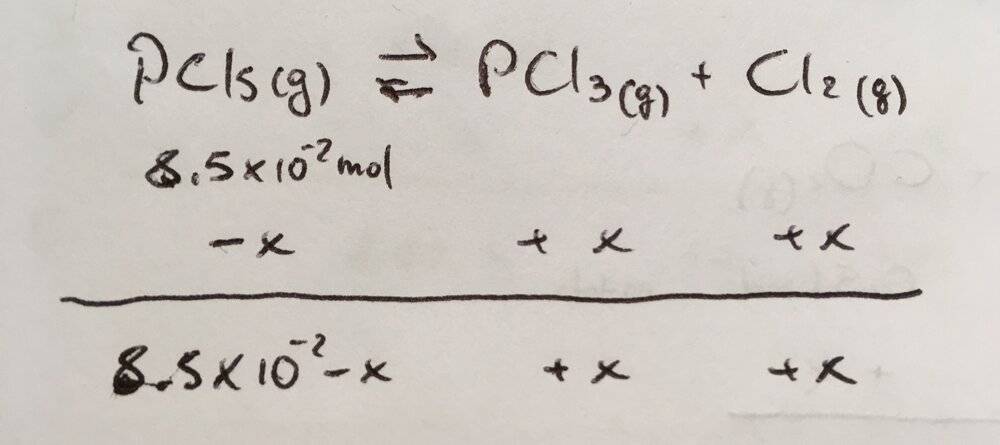 PCl5(g) ⇌ PCl3(g) + Cl2(g)
8.5×10⁻² mol
-x +x +x
8.5×10⁻²-x +x +x